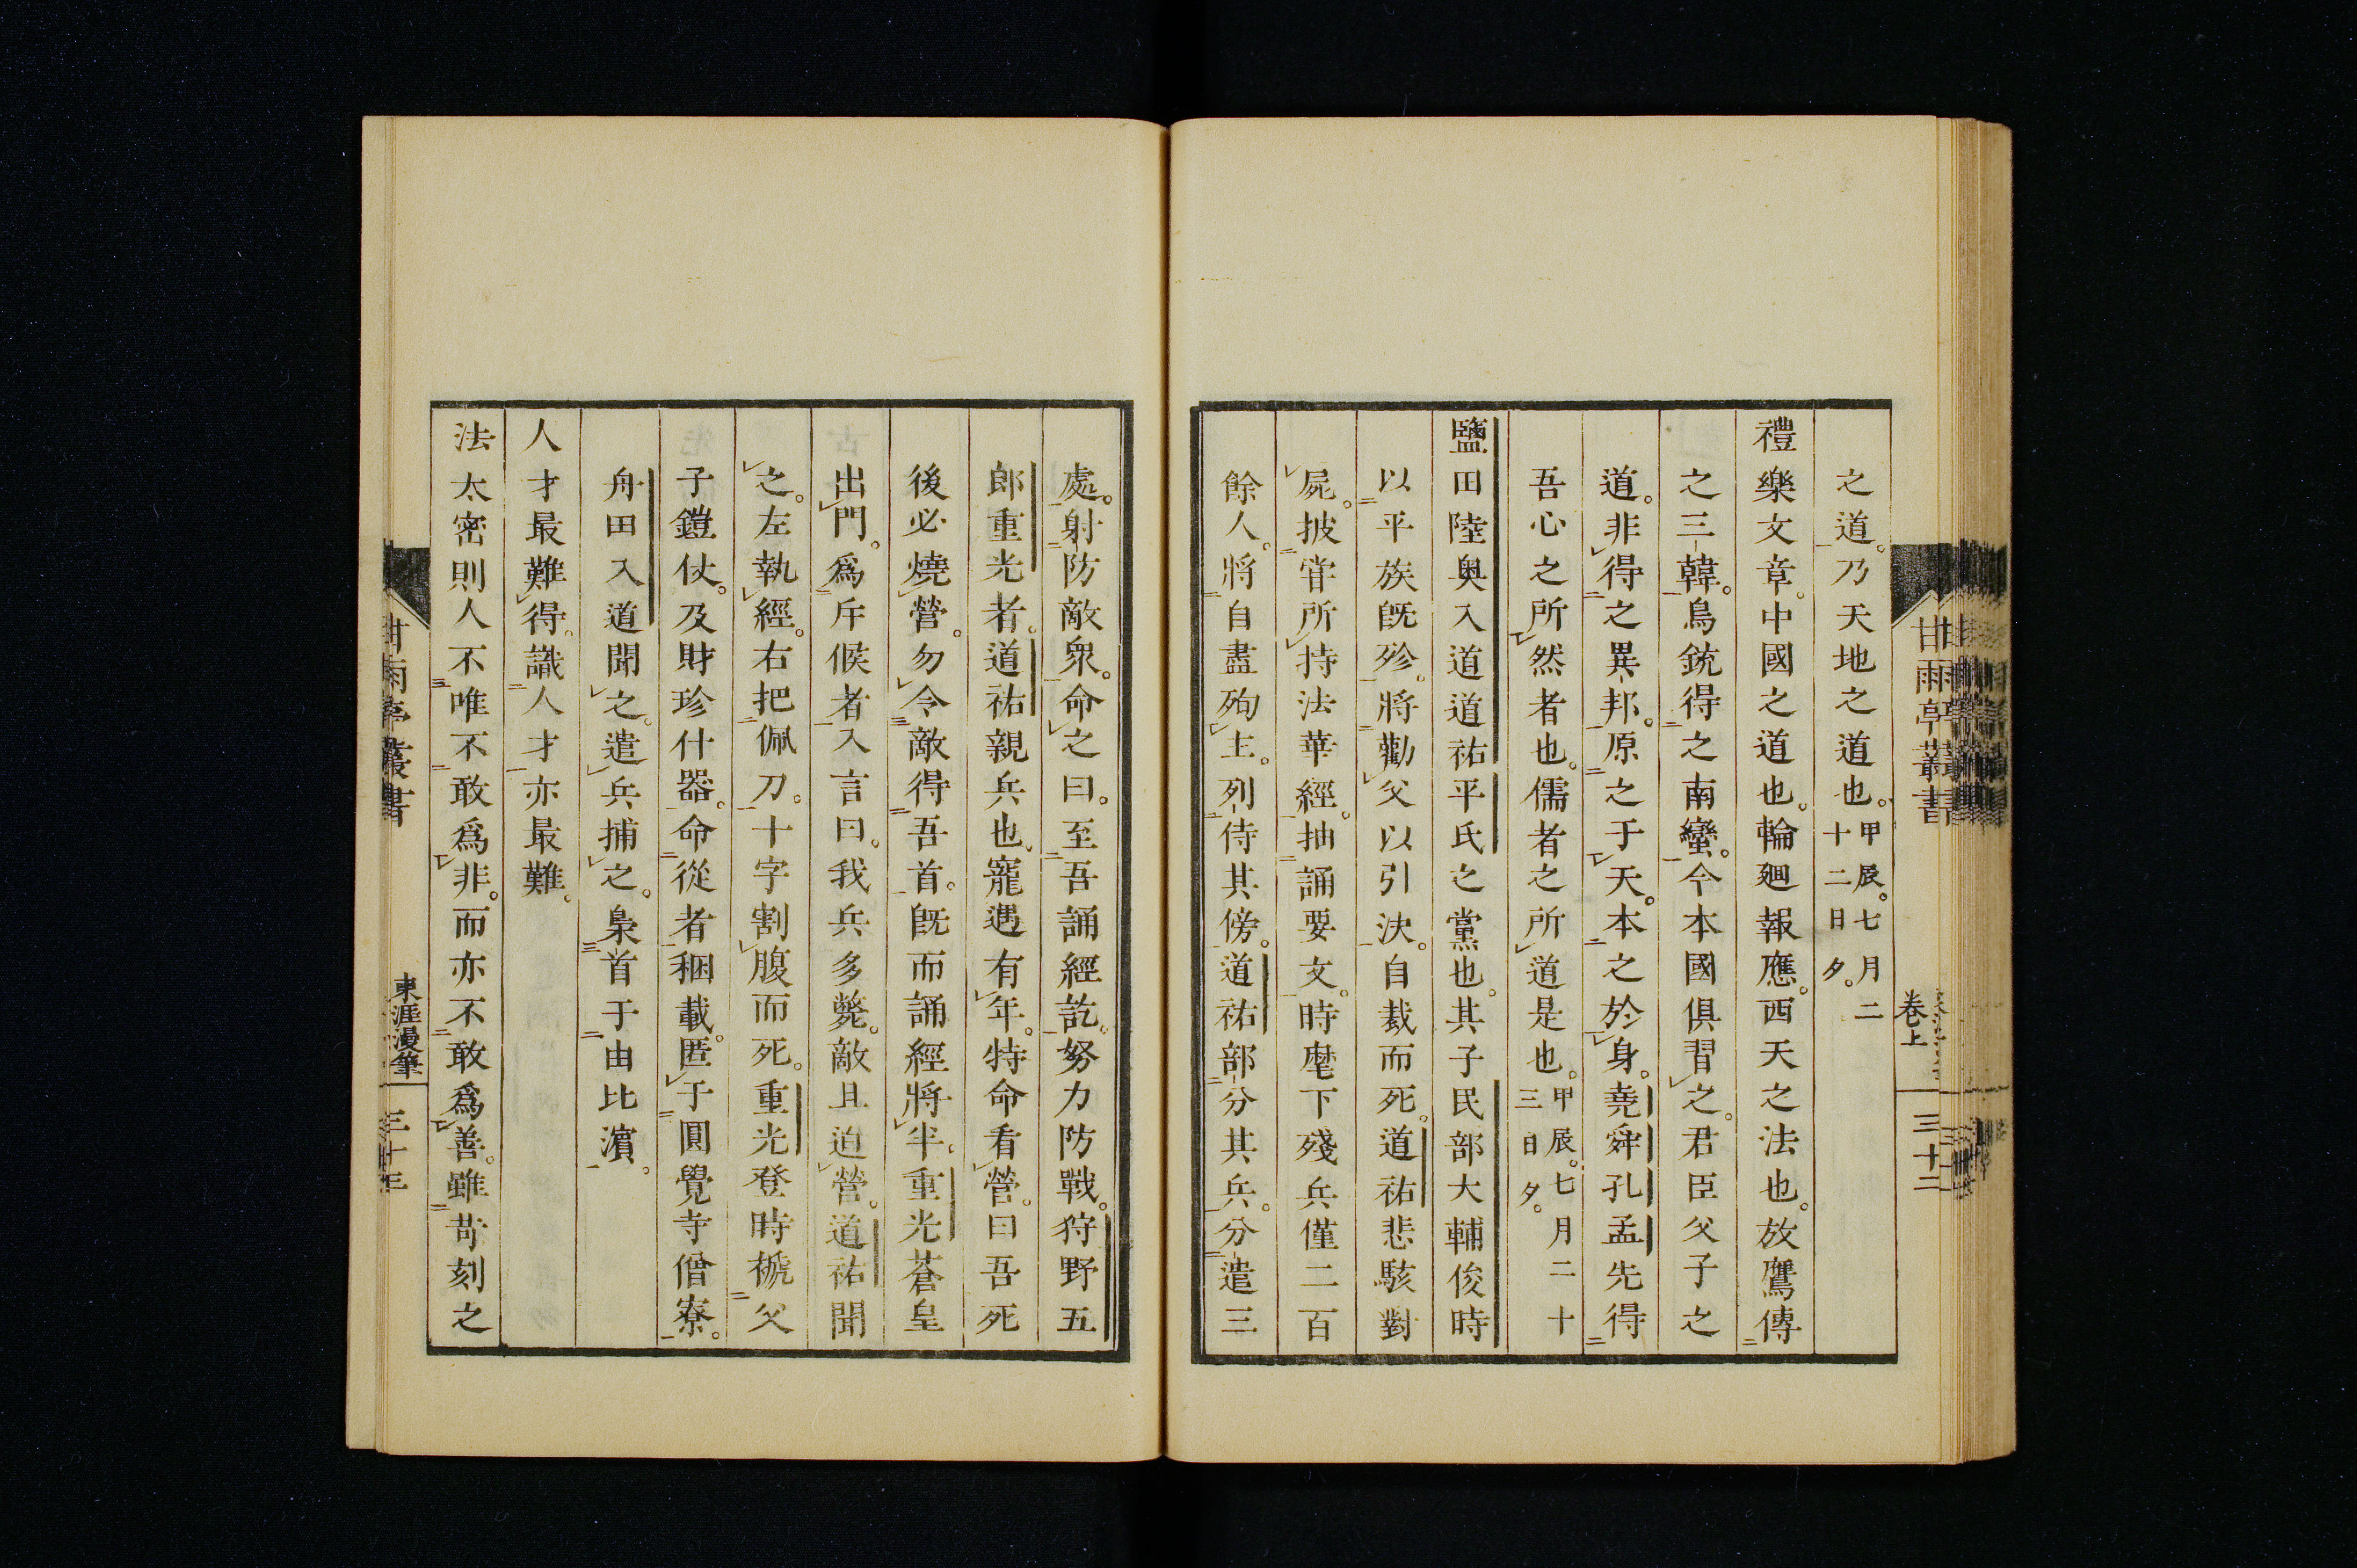 之道。乃天地之道也。甲辰。七月二十二日夕。
禮樂文章。中國之道也。輪廻報應。西天之法也。放鷹傳
之三韓。鳥銃得之南蠻。今本國俱習之。君臣父子之
道。非得之異邦。原之于天。本之於身。堯舜孔孟先得
吾心之所然者也。儒者之所道是也。甲辰。七月二十三日夕。
鹽田陸奥入道道祐平氏之黨也。其子民部大輔俊時
以平族旣殄。將勸父以引決。自裁而死。道祐悲駭對
屍。披甞所持法華經。抽誦要文。時麾下殘兵僅二百
餘人。將自盡殉主。列侍其傍。道祐部分其兵。分遣三
甘雨亭叢書
卷上
三十二
處。射防敵衆。命之曰。至吾誦經訖。努力防戰。狩野五
郎重光者。道祐親兵也。寵遇有年。特命看營。曰吾死
後必燒營。勿令敵得吾首。旣而誦經將半。重光蒼皇
出門。爲斥候者入言曰。我兵多斃。敵且迫營。道祐聞
之。左執經。右把佩刀。十字割腹而死。重光登時褫父
子鎧仗。及財珍什器。命從者稇載。匿于圓覺寺僧寮。
舟田入道聞之。遣兵捕之。梟首于由比濵。
人才最難得。識人才亦最難。
法太密則人不唯不敢爲非。而亦不敢爲善。雖苛刻之
甘雨亭叢書
東涯漫筆